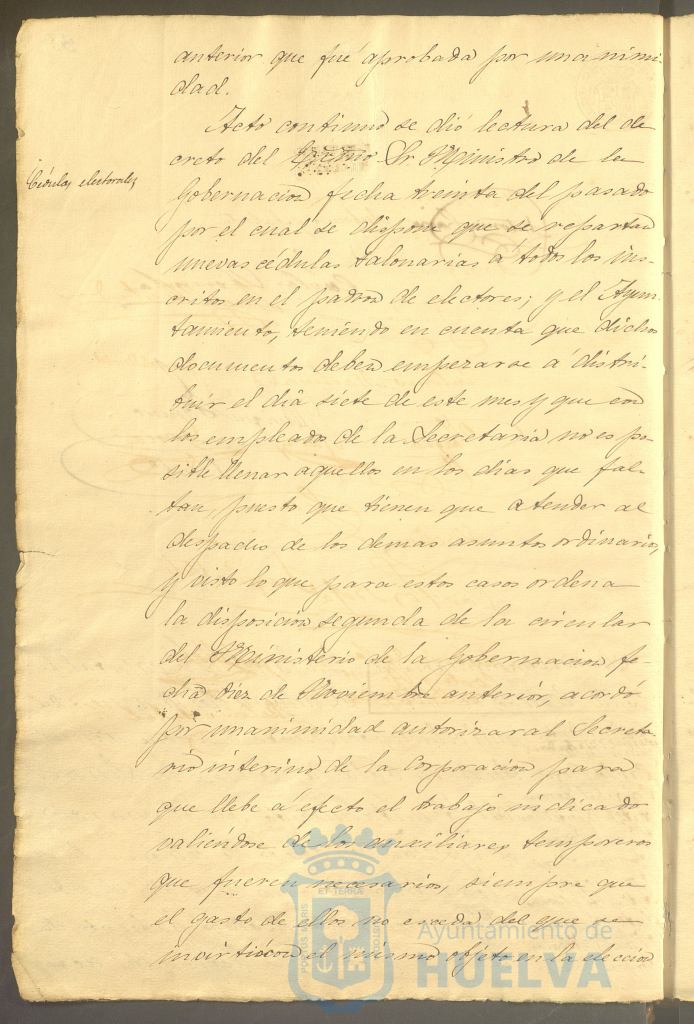 anterior que fué aprobada por unanimi-
dad.
Acto continuo se dió lectura del de
creto del Excmo Sr Ministro de la
Cédulas electorales
Gobernacion fecha treinta del pasado
por el cual se dispone que se repartan
nuevas cédulas talonarias á todos los ins-
critos en el padron de electores; y el Ayun-
tamiento, teniendo en cuenta que dichos
documentos deben empezarse á distri-
buir el dia siete de este mes y que con
los empleados de la Secretaria no es po-
sible llenar aquellos en los dias que fal-
tan, puesto que tienen que atender al
despacho de los demas asuntos ordinarios,
y visto lo que para estos casos ordena
la disposicion segunda de la circular
del Ministerio de la Gobernacion fe-
cha diez de Noviembre anterior, acordó
por unanimidad autorizar al Secreta
rio interino de la Corporacion para
que llebe á efecto el trabajo indicado
valiéndose de los auxiliares temporeros
que fueren necesarios, siempre que
el gasto de ellos no exceda del que se
con el mismo objeto en la eleccion
PORTUS MARIS
ET TERRÆ
CUSTODIA
Ayuntamiento de
HUELVA